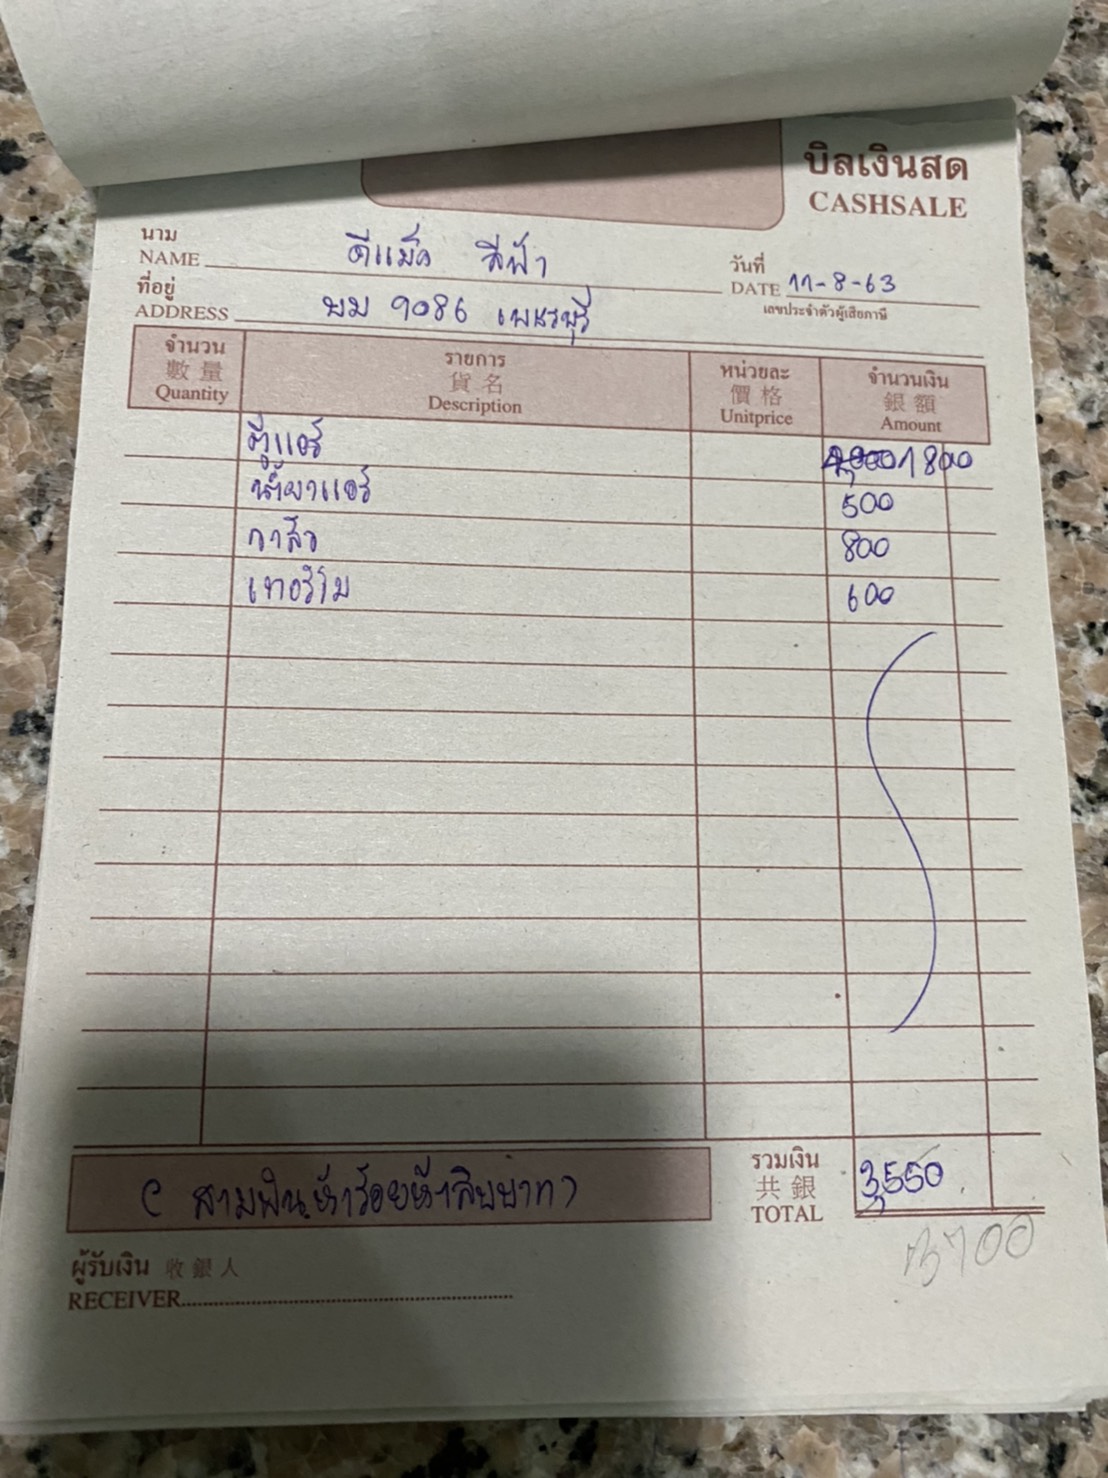 บิลเงินสด
CASHSALE
นาม
NAME ดีแม็ค สีฟ้า
วันที่
DATE 11-8-63
ที่อยู่
ADDRESS บม 9086 เพชรบุรี
เลขประจำตัวผู้เสียภาษี
จำนวน รายการ หน่วยละ จำนวนเงิน
數量 貨名 價格 銀額
Quantity Description Unitprice Amount
ตู้แอร์ 1800
น้ำยาแอร์ 500
วาล์ว 800
เทอร์โม 600
(สามพันห้าร้อยห้าสิบบาท)
รวมเงิน
共銀
TOTAL 3,550
3700
ผู้รับเงิน 收銀人
RECEIVER